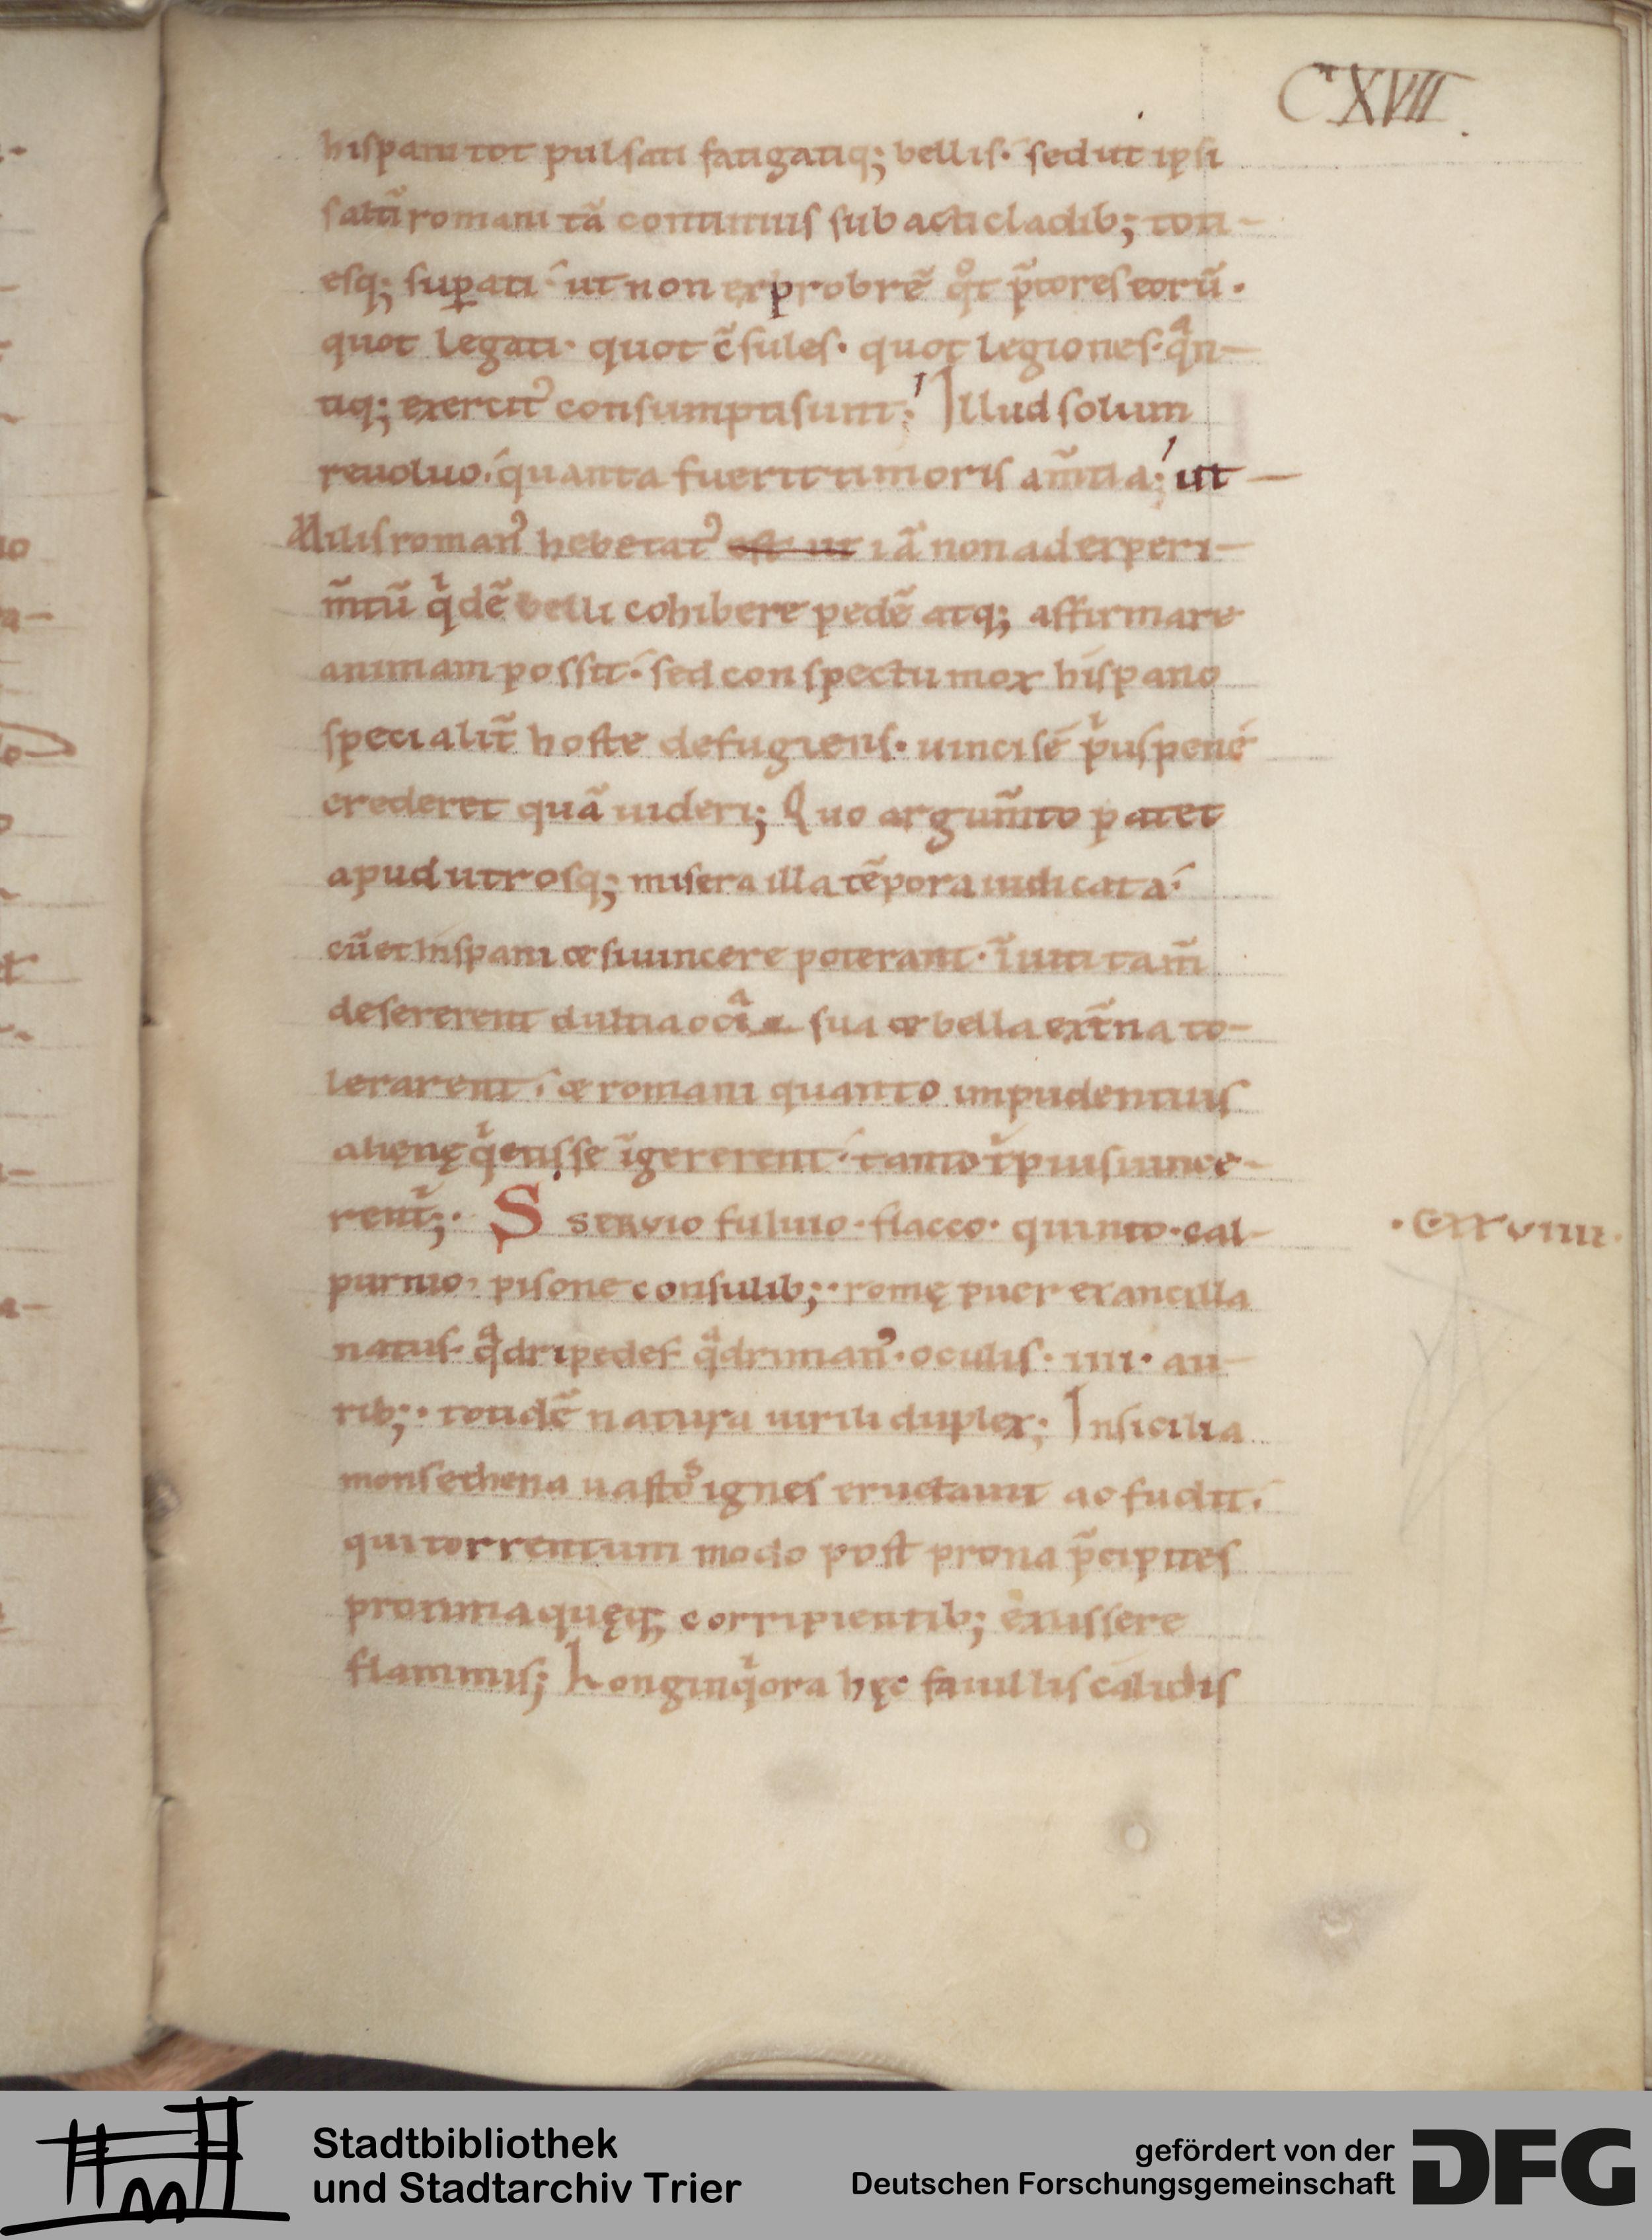 CXVII.
hispani tot pulsati fatigatiq; bellis· sed ut ipsi
saltĩ romani tã continuis sub acti cladib; toti-
esq; suꝑati· ut non exprobrẽ qͦt p̃tores eorũ·
quot legati· quot c̃sules· quot legiones· qͣn-
tiq; exercit᾿ consumpti sunt; Illud solum
reuoluo· quanta fuerit timoris am̃tia; ut-
Milis roman᾿ hebetat᾿ est ut iã non ad experi-
m̃tũ qͥdẽ belli cohibere pedẽ atq; affirmare
animam possit· sed conspectu mox hispano
specialit̃ hoste defugiens· uinci sẽ pͥus pene
crederet quã uideri; Quo argum̃to patet
apud utrosq; misera illa tẽpora iudicata·
cũ et hispani & si uincere poterant· ĩuiti tam̃
desererent dulcia ocia sua & bella ext̃na to-
lerarent· & romani quanto impudentius
alienę qͥeti sse ĩgererent· tanto tͥpius uince-
rent̃; S servio fuluio·flacco· quinto·cal-
purnio· pisone consulib;· romę puer ex ancilla
natus· qͣdripedes qͣdriman᾿· oculis· iiii· au-
rib;· totidẽ natura uirili duplex; In sicilia
mons ethena uastos ignes eructauit ac fudit·
qui torrentum modo post prona p̃cipites
proxima quęq; corripientib; exussere
flammis; Longinqͥora hęc fauillis calidis
·CXXVIIII·
Stadtbibliothek
und Stadtarchiv Trier
gefördert von der
Deutschen Forschungsgemeinschaft
DFG